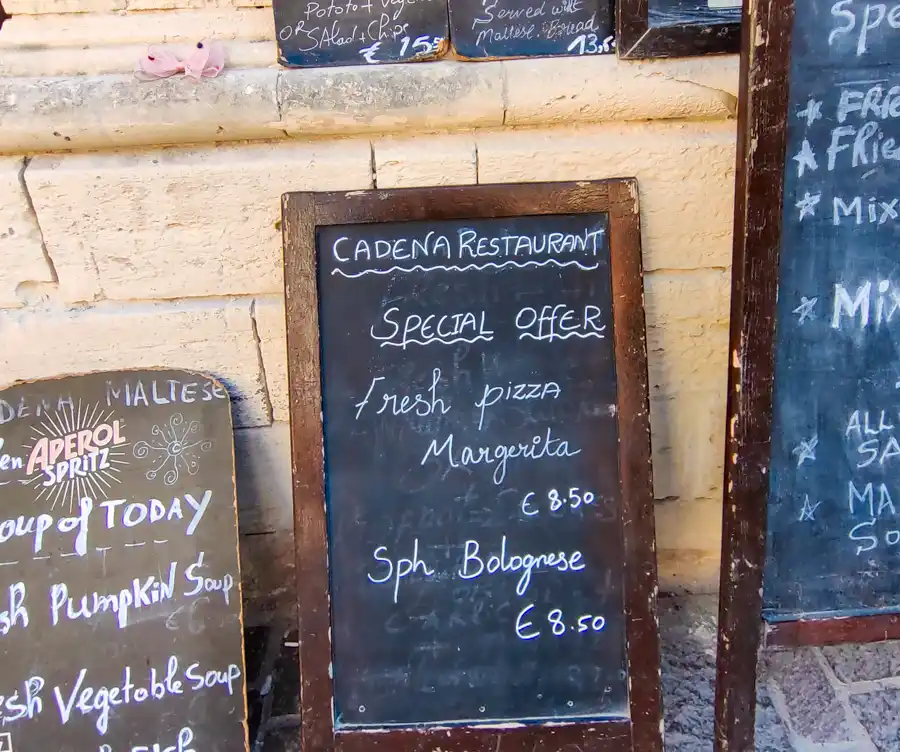 Potato + Vege
OR SAlad + Chips
€ 15.5
Served with
Maltese Bread
13,5
CADENA RESTAURANT
SPECIAL OFFER
Fresh pizzA
Margerita
€ 8.50
Sph Bolognese
€ 8.50
DENA MALTESE
APEROL
SPRITZ
oup of TODAY
sh PUMPKIN Soup
sh Vegetable Soup
Spe
FRIE
FRIe
Mix
Mix
ALL
SA
MA
So